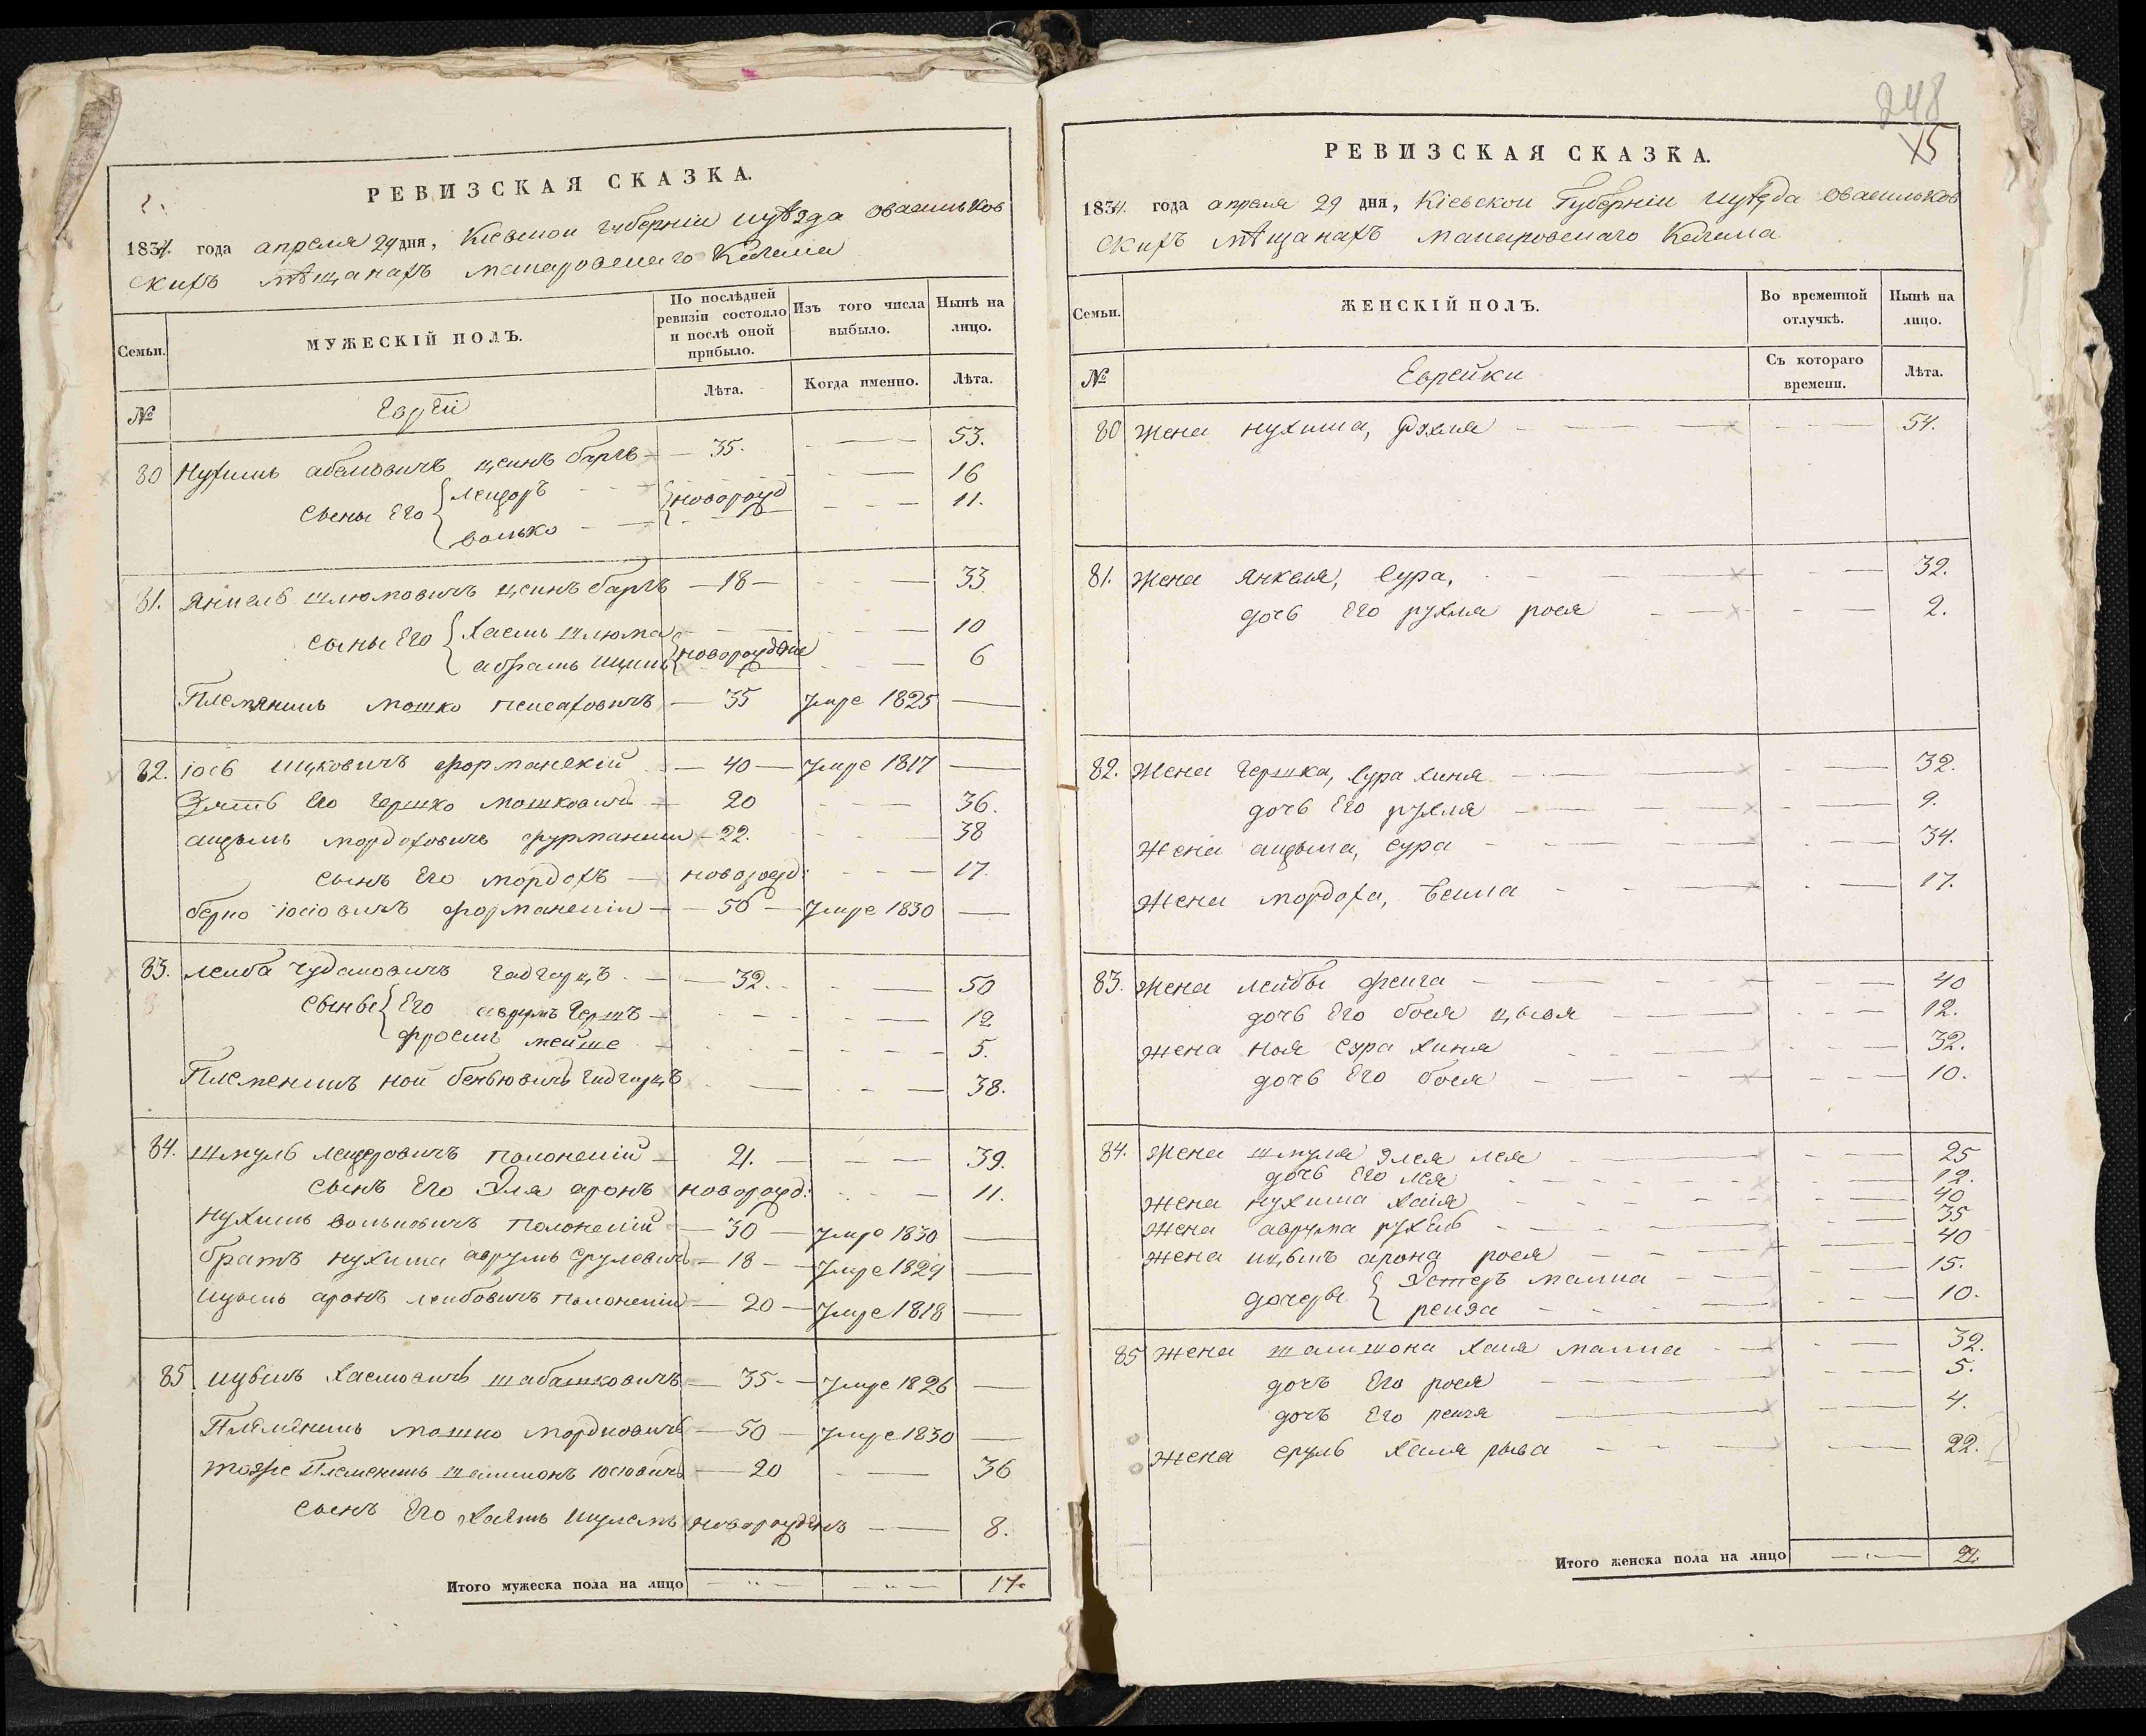 РЕВИЗСКАЯ СКАЗКА.
1834. года апреля 29 дня, Кіевской губерніи и уѣзда о васильков
скихъ мѣщанахъ макаровскаго Кагала
Семьи.
МУЖЕСКІЙ ПОЛЪ.
По послѣдней ревизіи состояло и послѣ оной прибыло.
Изъ того числа выбыло.
Нынѣ на лицо.
№
Евреи
Лѣта.
Когда именно.
Лѣта.
80 Нухимъ абамовичъ — 35. — 53.
сыны Его лейзоръ новорожд — 16
волько — 11.
81. Янкель шлюмовичъ — 18 — 33
сыны Его Хаемъ шлюма — 10
абрамъ ицикъ новорожденые — 6
Племяникъ мошко пейсаховичъ — 35 Умре 1825 —
82. іось ицковичъ форманскій — 40 — Умре 1817 —
Зять Его гершко мошковичъ — 20 — 36.
мордоховичъ фурманскій — 22. — 38
сынъ Его мордохъ — новорожд: — 17.
берко іосіовичъ форманскій — 50 — Умре 1830 —
83. лейба — 32. — 50
сыны Его аврумъ гершъ — 12
фроемъ мейше — 5.
Племеникъ ной — 38.
84. шмуль лейзеровичъ полонскій — 21. — 39.
сынъ Его Эля аронъ новорожд: — 11.
нухимъ вольковичъ полонскій — 30 — Умре 1830 —
братъ нухима аврумъ срулевичъ — 18 — Умре 1829 —
аронъ лейбовичъ полонскій — 20 — Умре 1818 —
85 Хаемовичъ шабашковичъ — 35 — Умре 1826 —
Племеникъ мошко мордковичъ — 50 — Умре 1830 —
тоже Племеникъ шамшонъ іосіовичъ — 20 — 36
сынъ Его Хаемъ новорожденъ — 8.
Итого мужеска пола на лицо — " — — " — 17.
248
15
РЕВИЗСКАЯ СКАЗКА.
1834. года апреля 29 дня, Кіевской Губерніи и уѣзда о васильков
скихъ мѣщанахъ макаровскаго Кагала
Семьи.
ЖЕНСКІЙ ПОЛЪ.
Во временной отлучкѣ.
Нынѣ на лицо.
№
Еврейки
Съ котораго времени.
Лѣта.
80 Жена нухима, рохля — 54.
81. Жена янкеля, сура, — 32.
дочь Его рухля рося — 2.
82. Жена гершка, сура хиня — 32.
дочь Его рухля — 9.
Жена сура — 34.
Жена мордоха, бейла — 17.
83. Жена лейбы фейга — 40
дочь Его бося цывя — 12.
жена ноя сура хиня — 32.
дочь Его бося — 10.
84. жена шмуля элея лея — 25
дочь Его лея — 12.
жена нухима хая — 40
жена аврума рухель — 35
жена арона рося — 40
дочеры Эстеръ малка — 15.
рейза — 10.
85 жена шамшона хая малка — 32.
дочъ Его рося — 5.
дочъ Его — 4.
жена сруль хая рыва — 22.
Итого женска пола на лицо — " — 21.